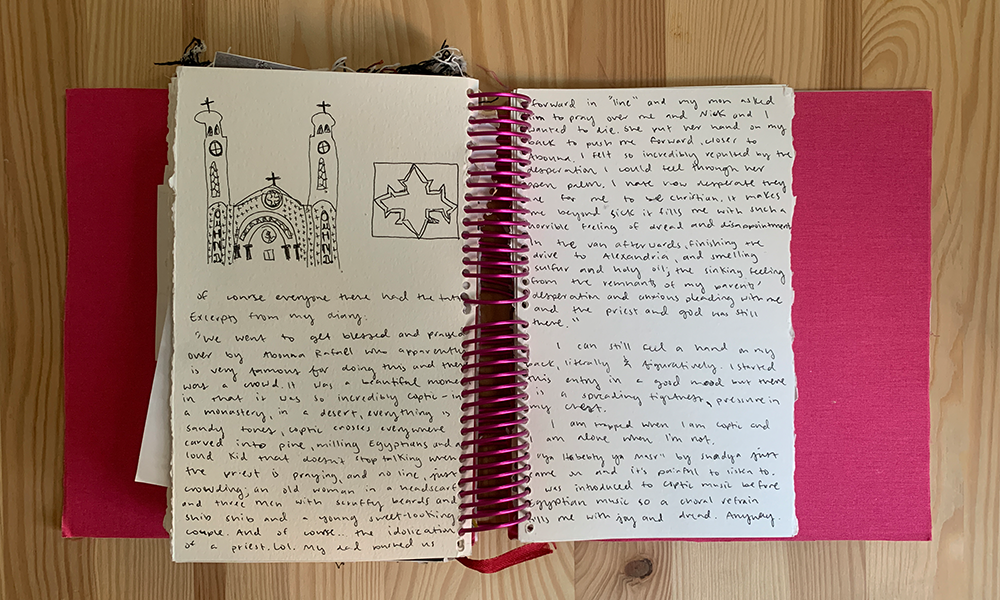 of course everyone there had the tatt
Excerpts from my diary.
"We went to get blessed and prayed
over by Abouna Rafaell who apparently
is very famous for doing this and there
was a crowd. It was a beautiful mome
in that it was so incredibly coptic - in
a monastery, in a desert, everything is
sandy toned, coptic crosses everywhere
carved into pine, milling Egyptians and a
loud kid that doesn't stop talking when
the priest is praying, and no line, just
crowding; an old woman in a headscarf
and three men with scruffy beards and
shib shib and a young sweet-looking
couple. And of course.. the idolication
of a priest. Lol. My dad pushed us
forward in "line" and my mom asked
him to pray over me and Nick and I
wanted to die. She put her hand on my
back to push me forward, closer to
abouna, I felt so incredibly repulsed by the
desperation I could feel through her
open palm. I hate how desperate they
are for me to be christian. It makes
me beyond sick it fills me with such a
horrible feeling of dread and disappointment
In the van afterwards, finishing the
drive to Alexandria, and smelling
sulfur and holy oil, the sinking feeling
from the remnants of my parents'
desperation and anxious pleading with me
and the priest and god was still
there."
I can still feel a hand on my
back, literally & figuratively. I started
this entry in a good mood but there
is a spreading tightness, pressure in
my chest.
I am trapped when I am coptic and
I am alone when I'm not.
"Ya Habebty ya Masr" by Shadya just
came on and it's painful to listen to.
I was introduced to coptic music before
Egyptian music so a choral refrain
fills me with joy and dread. Anyway.